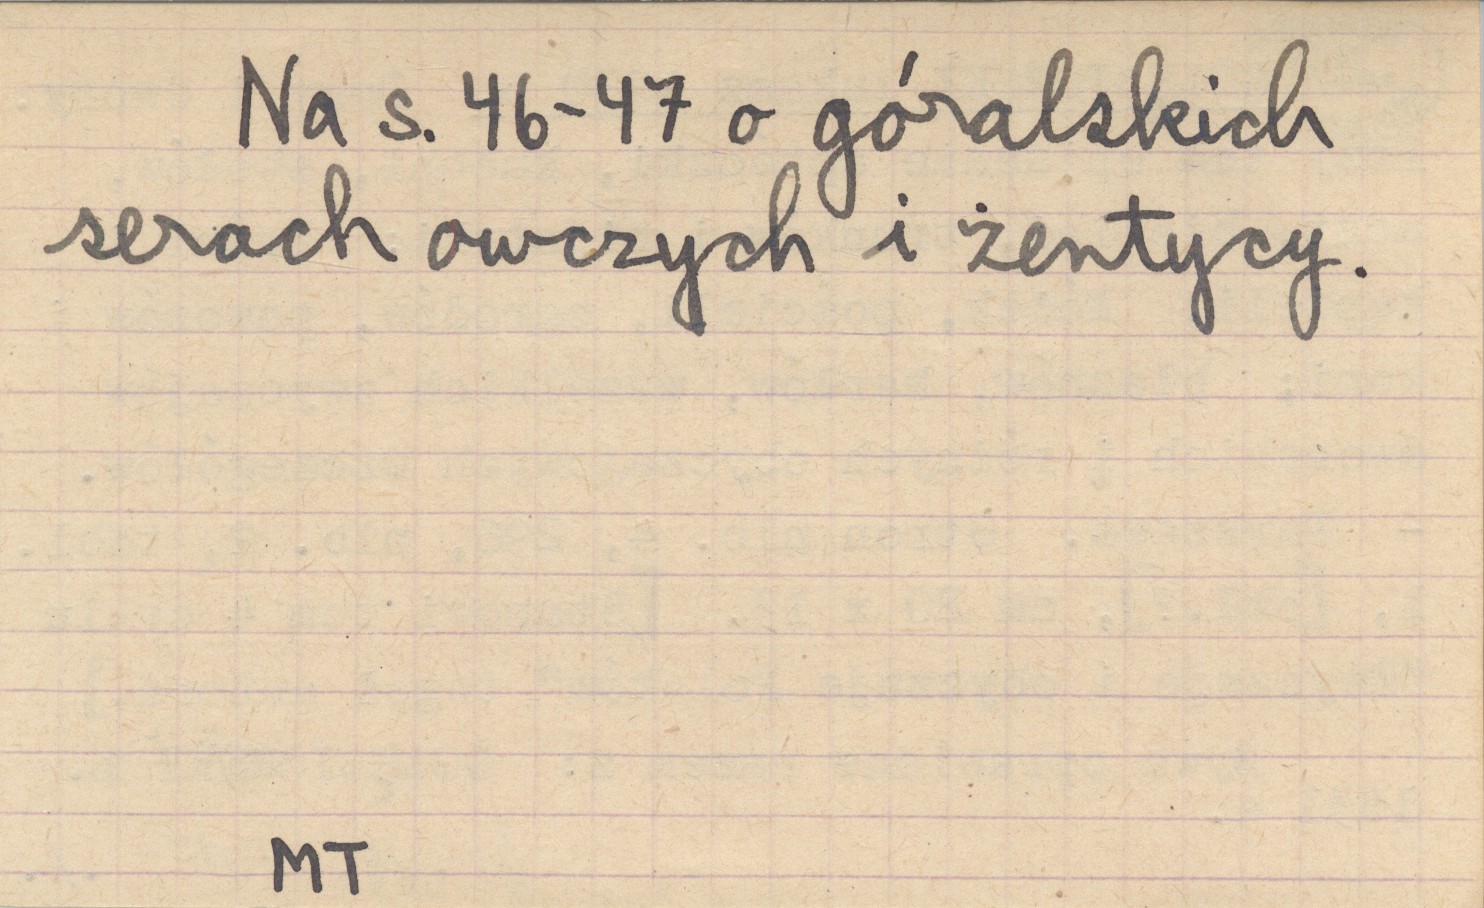 Na s. 46-47 o góralskich
serach owczych i żentycy.
MT